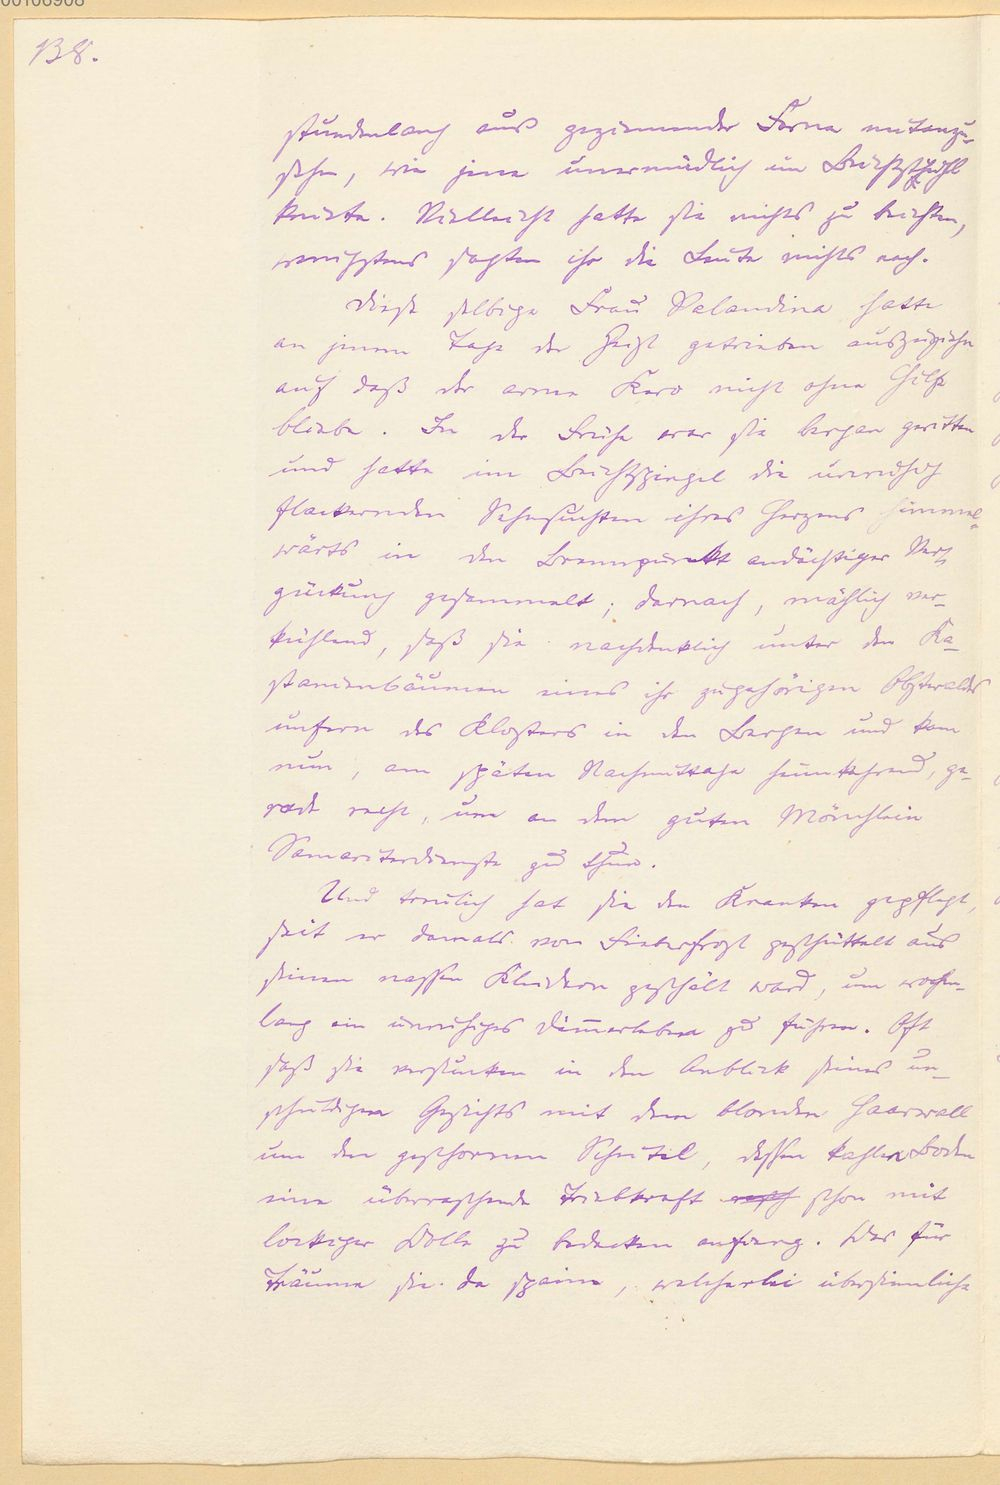 00106908
138.
stundenlang aus geziemender Ferne mitanzu-
sehn, wie jene unermüdlich im Beichtstuhl
kniete. Vielleicht hatte sie nichts zu beichten,
wenigstens sagten ihr die Leute nichts nach.
Diese selbige Frau Salandina hatte
an jenem Tage der Geist getrieben auszuziehn
auf daß der arme Karo nicht ohne Hilfe
bliebe. In der Frühe war sie bergan geritten
und hatte im Beichtspiegel die unredlich
flackernden Sehnsuchten ihres Herzens himmel-
wärts in den Brennpunkt andächtiger Ver-
zückung gesammelt; darnach, mählich ver-
kühlend, saß sie nachdenklich unter den Ka-
stanienbäumen eines ihr zugehörigen Obstwaldes
unfern des Klosters in den Bergen und kam
nun, am späten Nachmittage heimkehrend, ge-
rade recht, um an dem guten Mönchlein
Samariterdienste zu thun.
Und treulich hat sie den Kranken gepflegt,
seit er damals vom Fieberfrost geschüttelt aus
seinen nassen Kleidern geschält ward, um wochen-
lang ein unruhiges Dämmerleben zu führen. Oft
saß sie versunken in den Anblick seines un-
schuldigen Gesichts mit dem blonden Haarwall
um den geschornen Scheitel, dessen kahlen Boden
eine überraschende Triebkraft rasch schon mit
lockiger Wolle zu bedecken anfing. Was für
Träume sie da spann, welcherlei übersinnliche